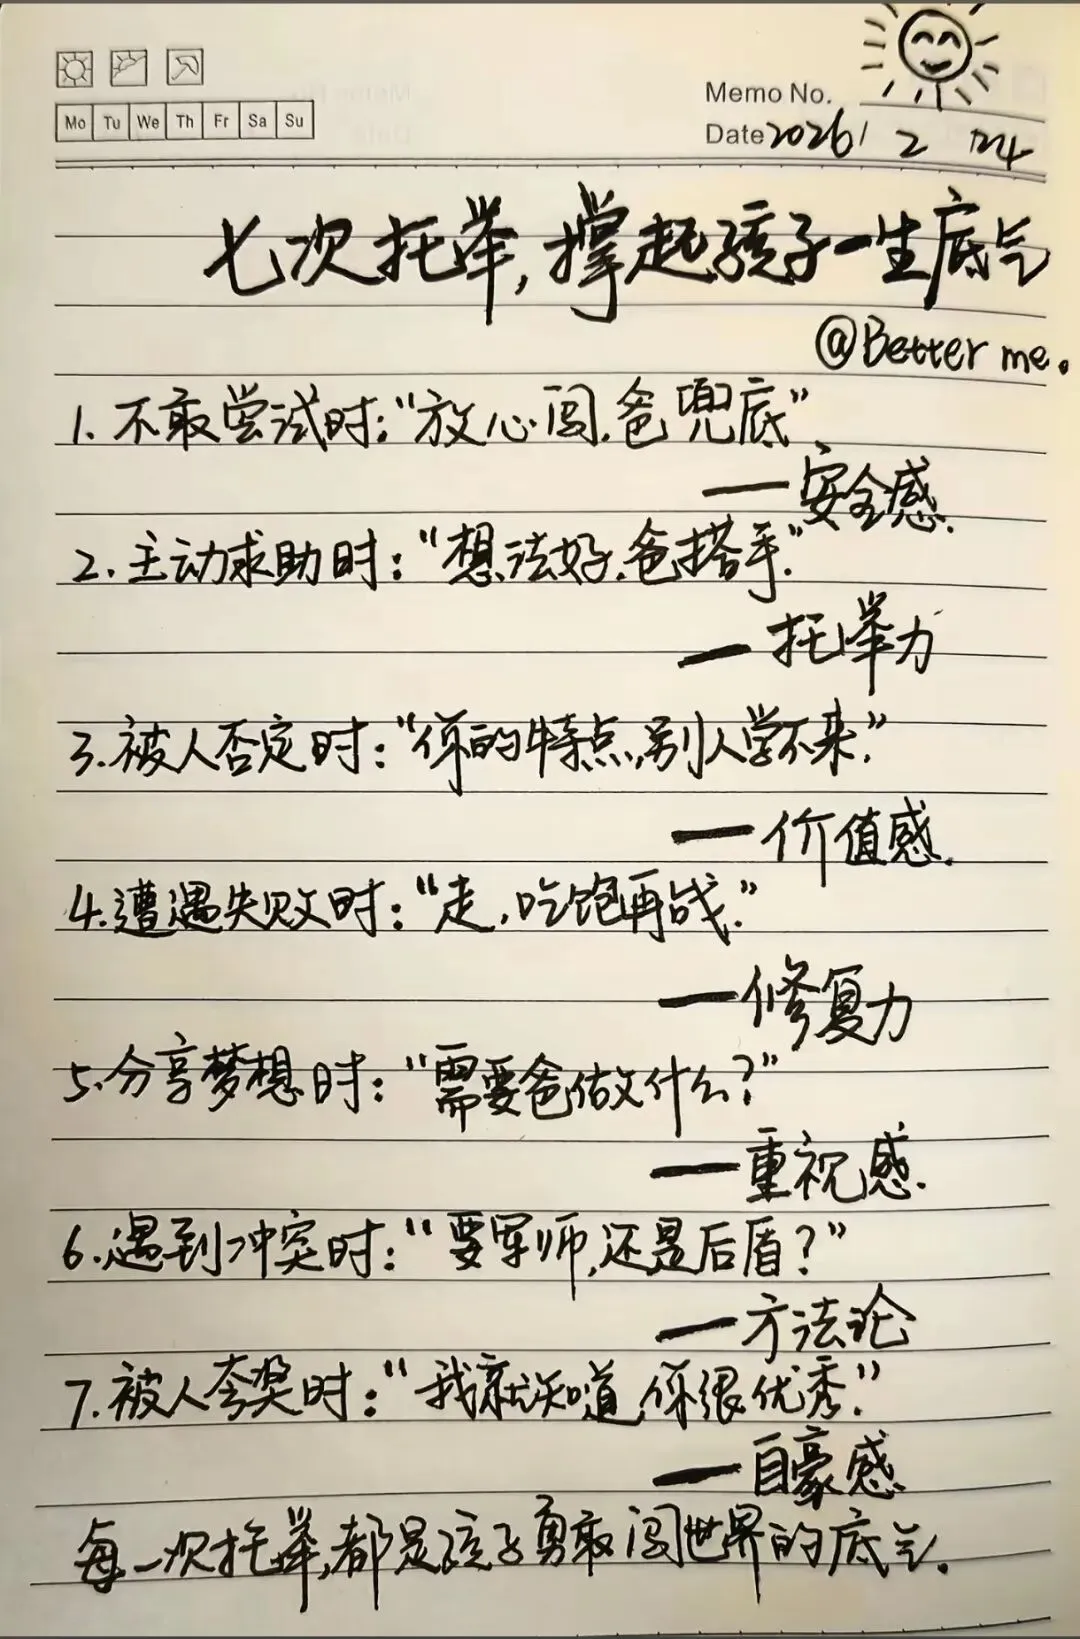 Memo No.
Mo Tu We Th Fr Sa Su
Date 2026/ 2 24
七次托举,撑起孩子一生底气
@Better me.
1.不敢尝试时:“放心闯,爸兜底”
—安全感.
2.主动求助时:“想法好,爸搭手.”
—托举力
3.被人否定时:“你的特点,别人学不来.”
—价值感.
4.遭遇失败时:“走,吃饱再战.”
—修复力
5.分享梦想时:“需要爸做什么?”
—重视感.
6.遇到冲突时:“要军师,还是后盾?”
—方法论
7.被人夸奖时:“我就知道,你很优秀.”
—自豪感
每一次托举,都是孩子勇敢闯世界的底气.